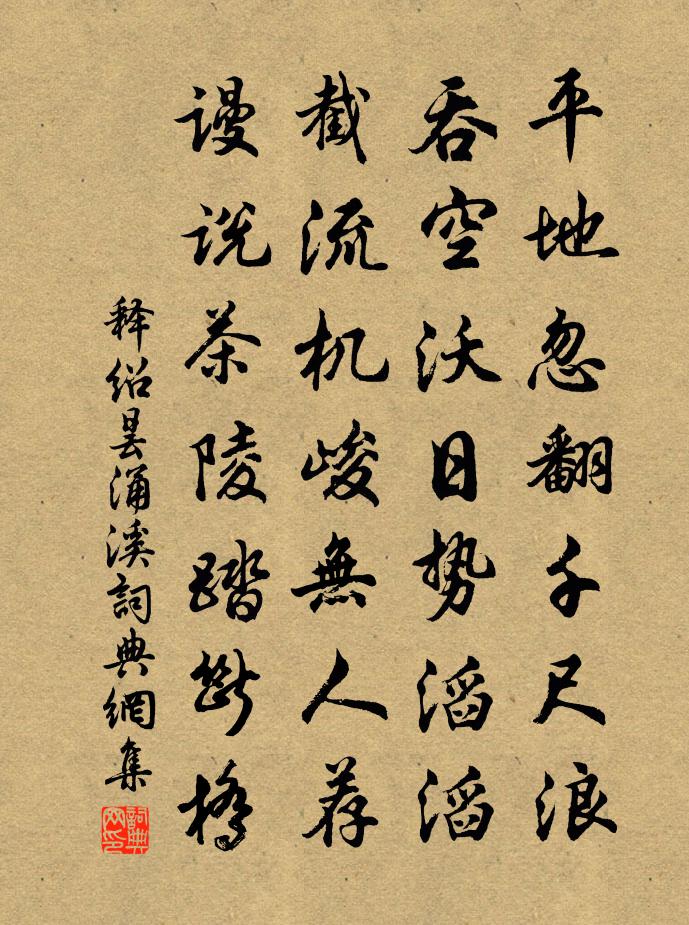 平地忽翻千尺浪
吞空沃日势滔滔
截流机峻無人荐
谩说茶陵踏断桥
释绍昙涌溪詞典網集
詞典网印